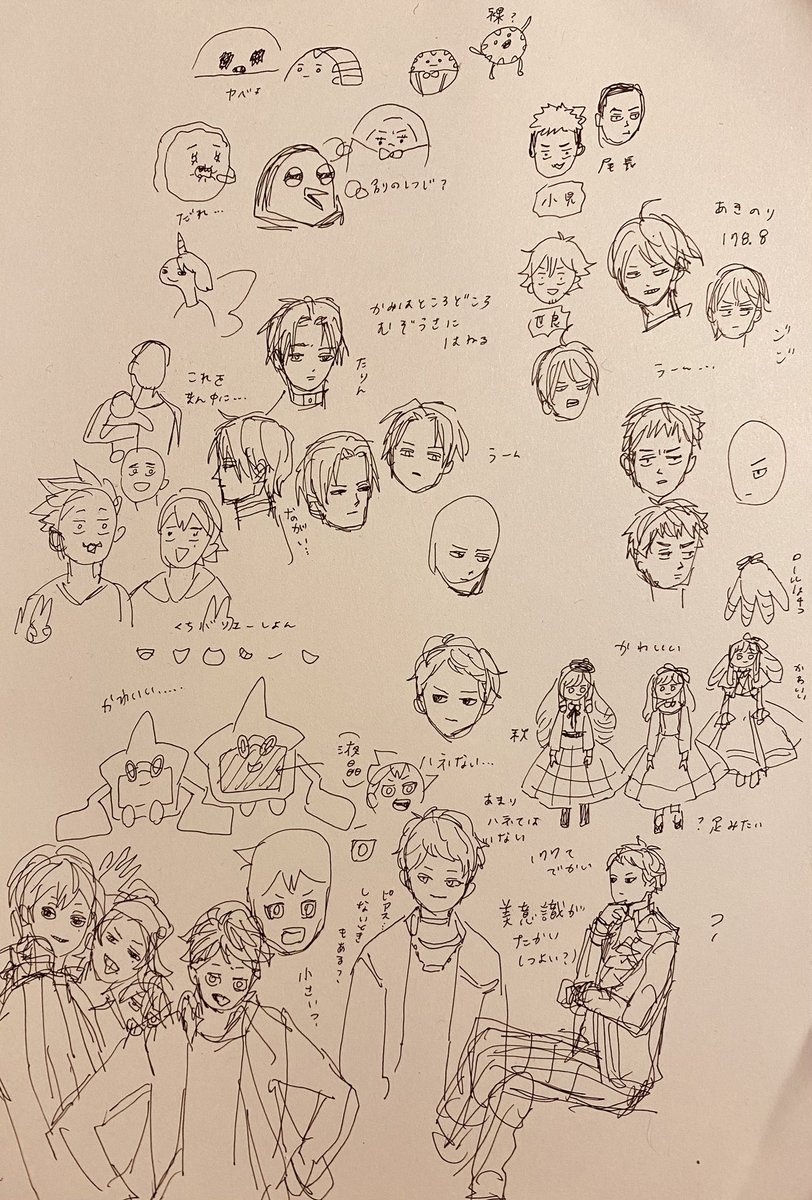 裸?
ヤベぇ
だれ…
別のしつじ?
尾長
小児
あきのり
178.8
世良
かみはところどころ
むぞうさに
はねる
たりん
これを
まん中に…
うーん…
うーん
ちがい…
くちバリエーしょん
かわいい
かわいい
かわいい……
(液晶)
ハネない…
秋
あまり
ハネては
いない
?足みたい
177て
でかい
美意識が
たかい
(つよい?)
ピアス…
しないとき
もある?
小さい?